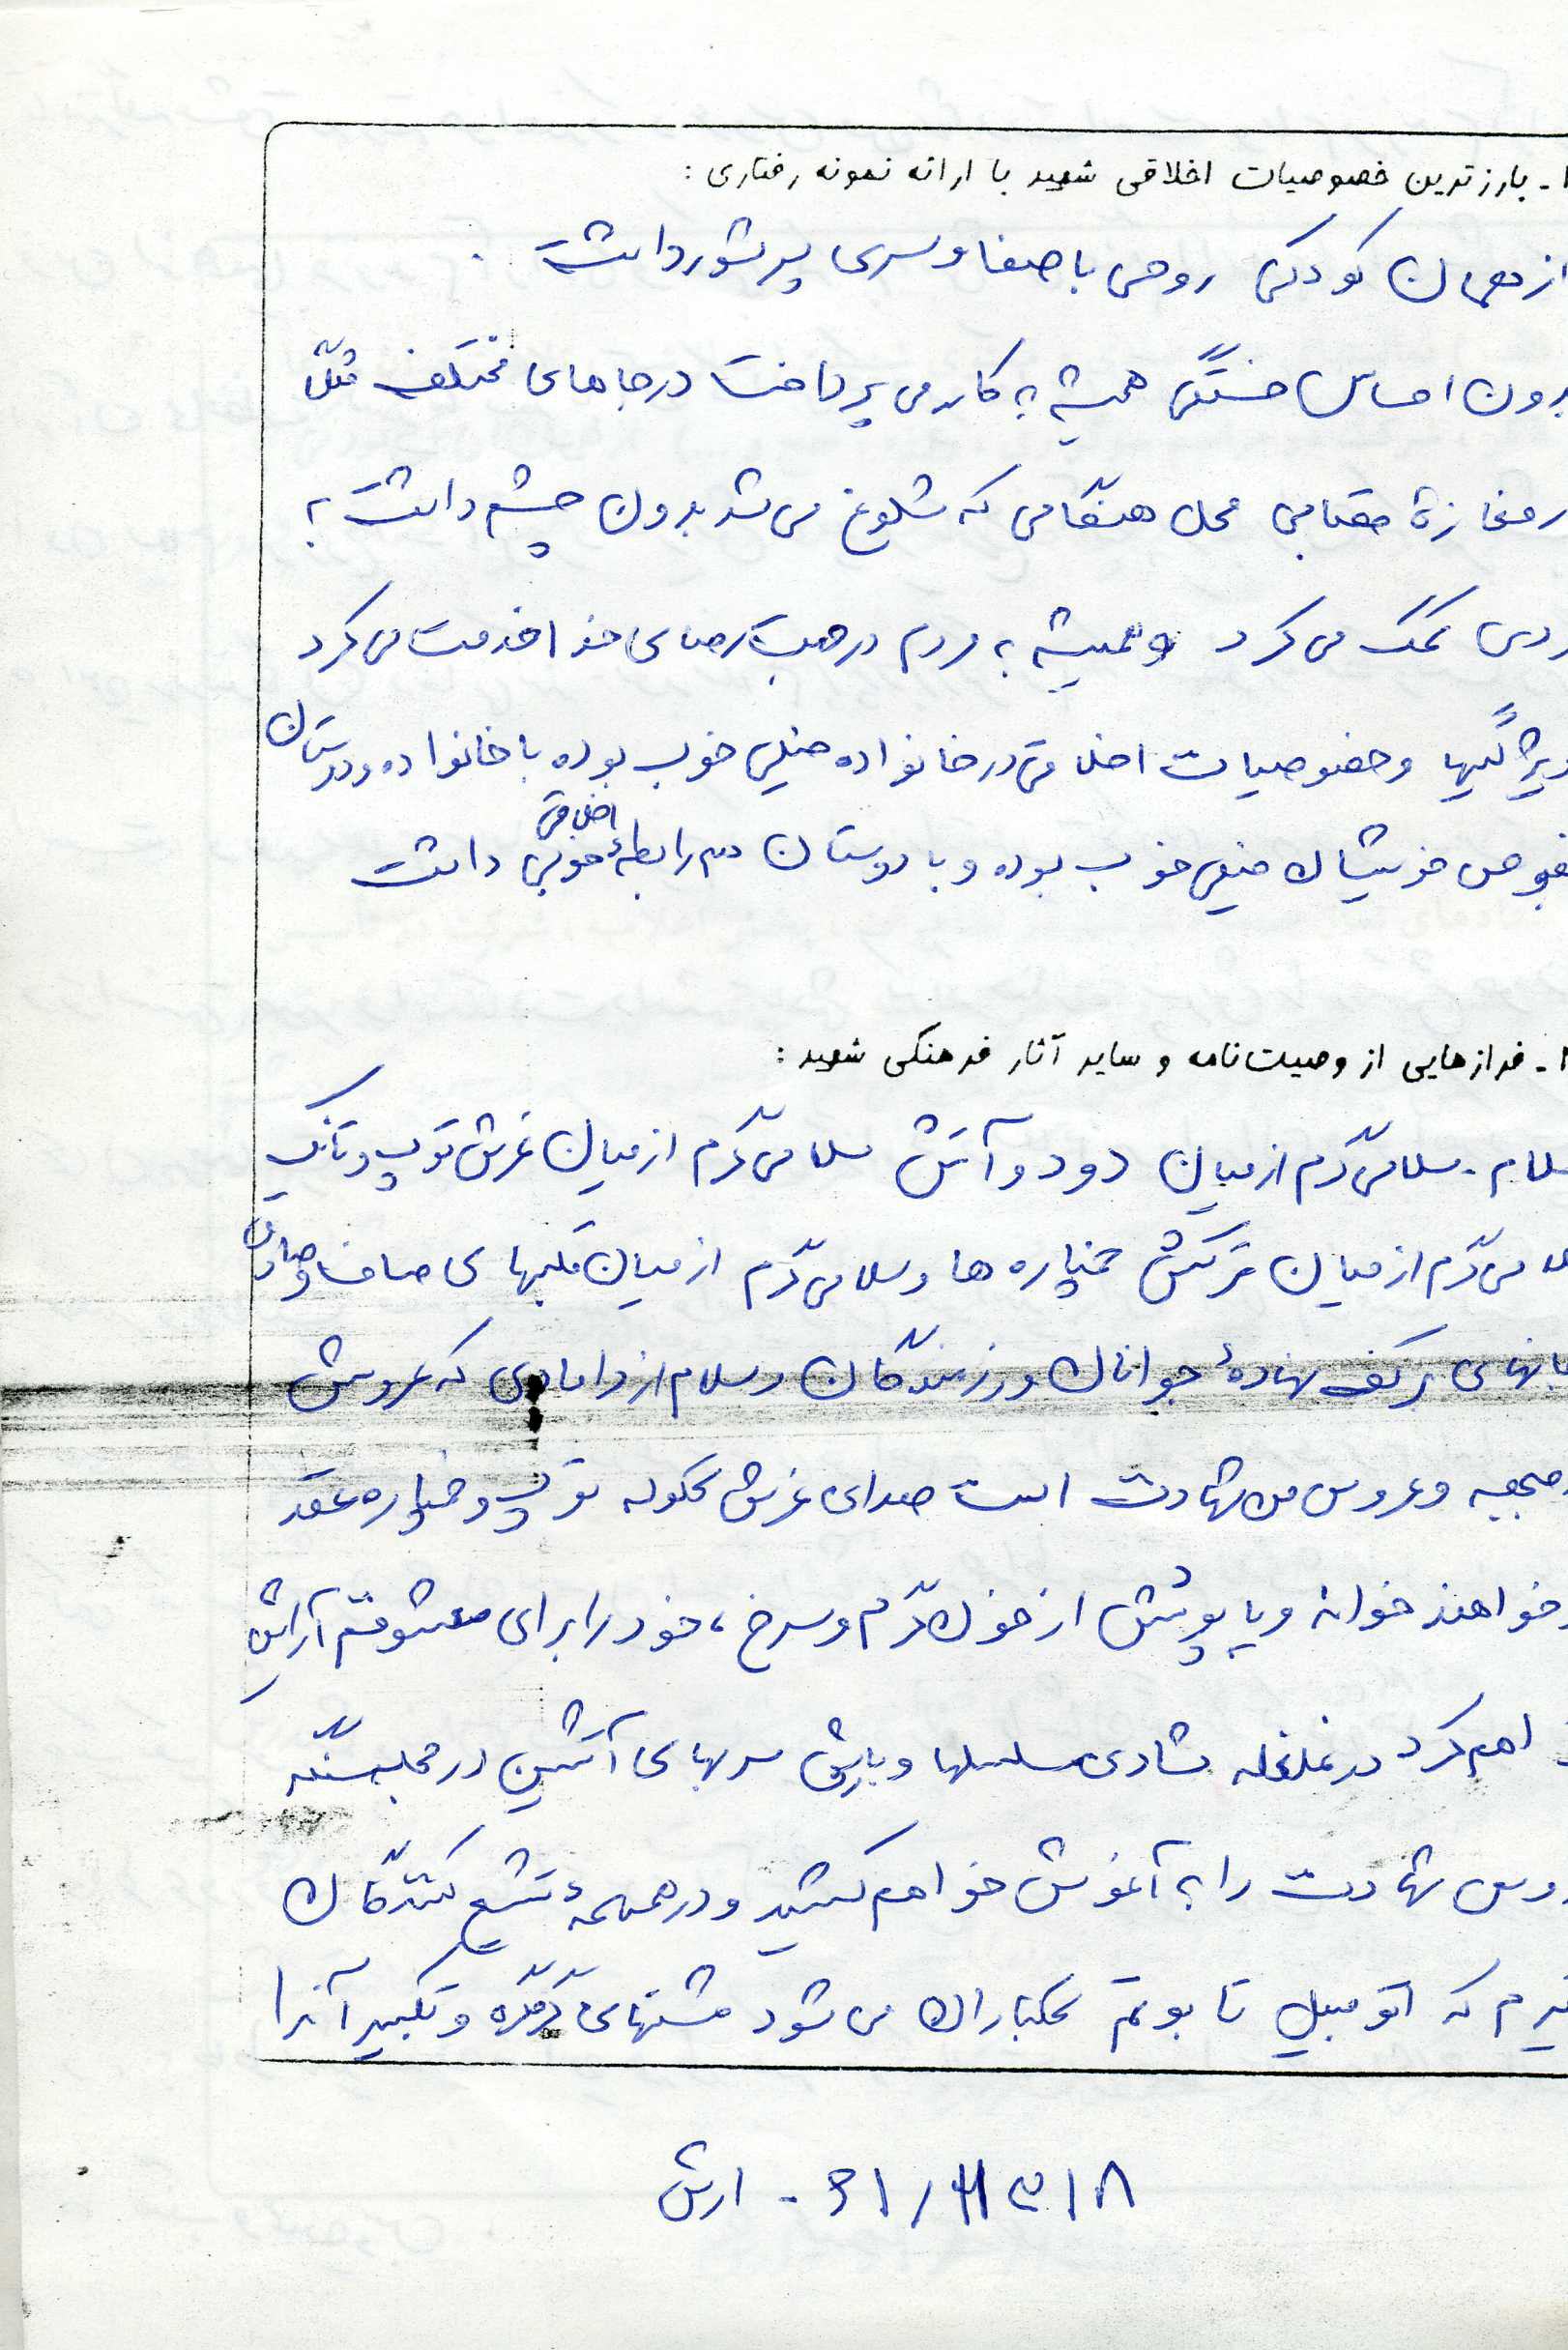 ۱- بارزترین خصوصیات اخلاقی شهید با ارائه نمونه رفتاری :
از همان کودکی روحی باصفا و سری پرشور داشت .
بدون احساس خستگی همیشه به کار می پرداخت در جاهای مختلف مثلاً
در مغازهٔ قصابی محل هنگامی که شلوغ می شد بدون چشم داشت به
کمک می کرد و همیشه به مردم در جهت رضای خدا خدمت می کرد
ویژگیها و خصوصیات اخلاقی در خانواده خیلی خوب بوده با خانواده و دوستان
بخصوص خویشان خیلی خوب بوده و با دوستان هم رابطهٔ اخلاقی خوبی داشت
- فرازهایی از وصیت‌نامه و سایر آثار فرهنگی شهید :
سلام - سلامی گرم از میان دود و آتش سلامی گرم از میان غرش توپ و تانک
سلامی گرم از میان ترکش خمپاره ها و سلامی گرم از میان قلبهای صاف و صادق
جانهای برکف نهادهٔ جوانان و رزمندگان و سلام از دامادی که عروسش
و عروس من شهادت است صدای غرش گلوله توپ و خمپاره عقد
خواهند خواند و با پوشش از خون گرم و سرخ ، خود را برای معشوقم آرایش
خواهم کرد در غلغله شادی مسلسلها و بارش سربهای آتشین در حجله سنگر
عروس شهادت را به آغوش خواهم کشید و در همهمهٔ تشییع کنندگان
که اتومبیل تابوتم گلباران می شود مشتهای گره کرده و تکبیر آنرا
ارش